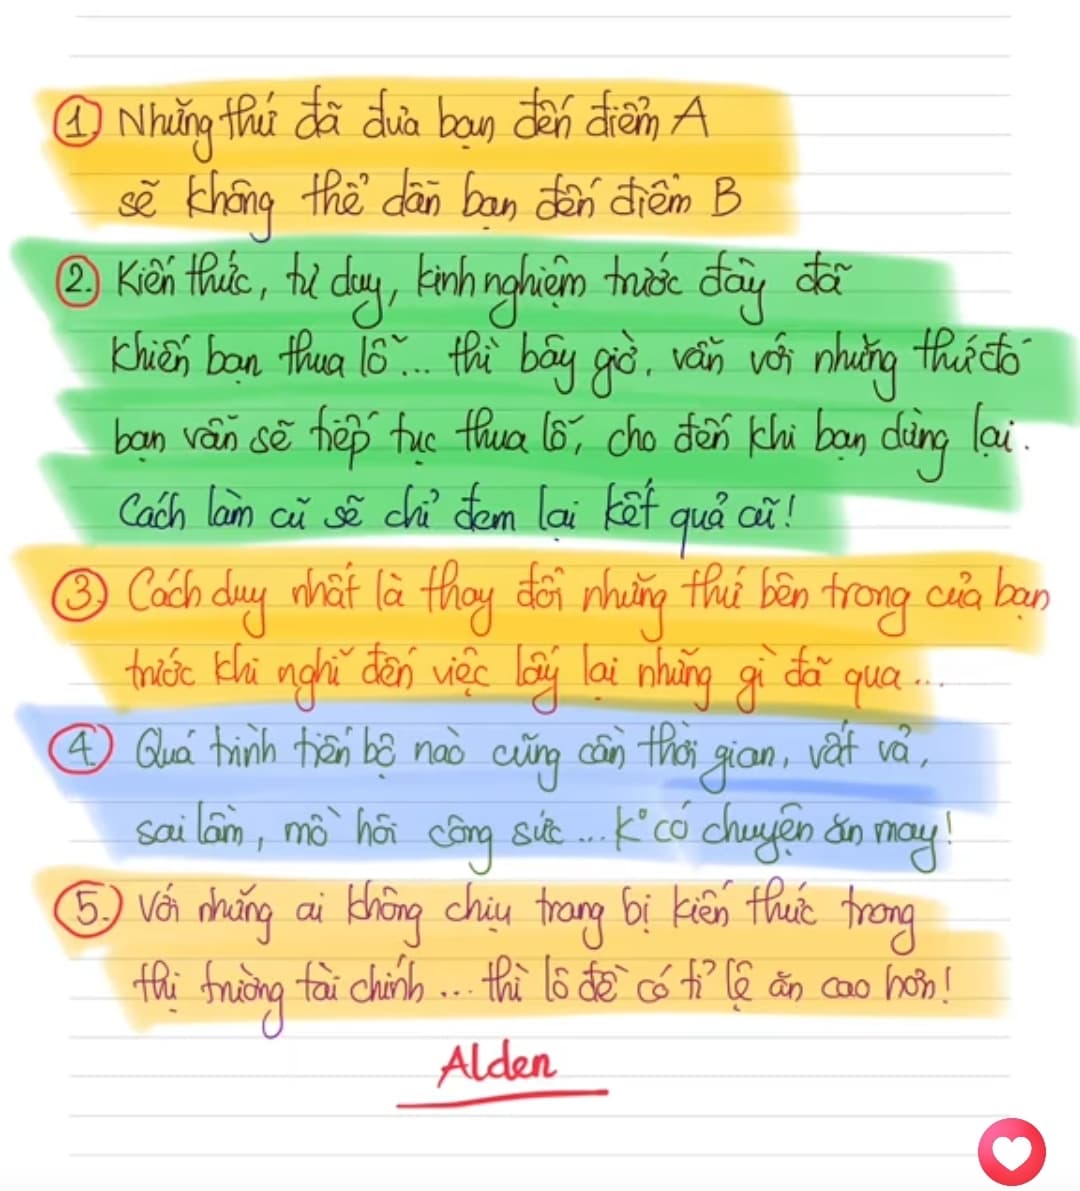 1. Những thứ đã đưa bạn đến điểm A
sẽ không thể dẫn bạn đến điểm B
2. Kiến thức, tư duy, kinh nghiệm trước đây đã
khiến bạn thua lỗ... thì bây giờ, vẫn với những thứ đó
bạn vẫn sẽ tiếp tục thua lỗ, cho đến khi bạn dừng lại.
Cách làm cũ sẽ chỉ đem lại kết quả cũ!
3. Cách duy nhất là thay đổi những thứ bên trong của bạn
trước khi nghĩ đến việc lấy lại những gì đã qua...
4. Quá trình tiến bộ nào cũng cần thời gian, vất vả,
sai lầm, mồ hôi công sức... K° có chuyện ăn may!
5. Với những ai không chịu trang bị kiến thức trong
thị trường tài chính... thì lô đề có tỉ lệ ăn cao hơn!
Alden